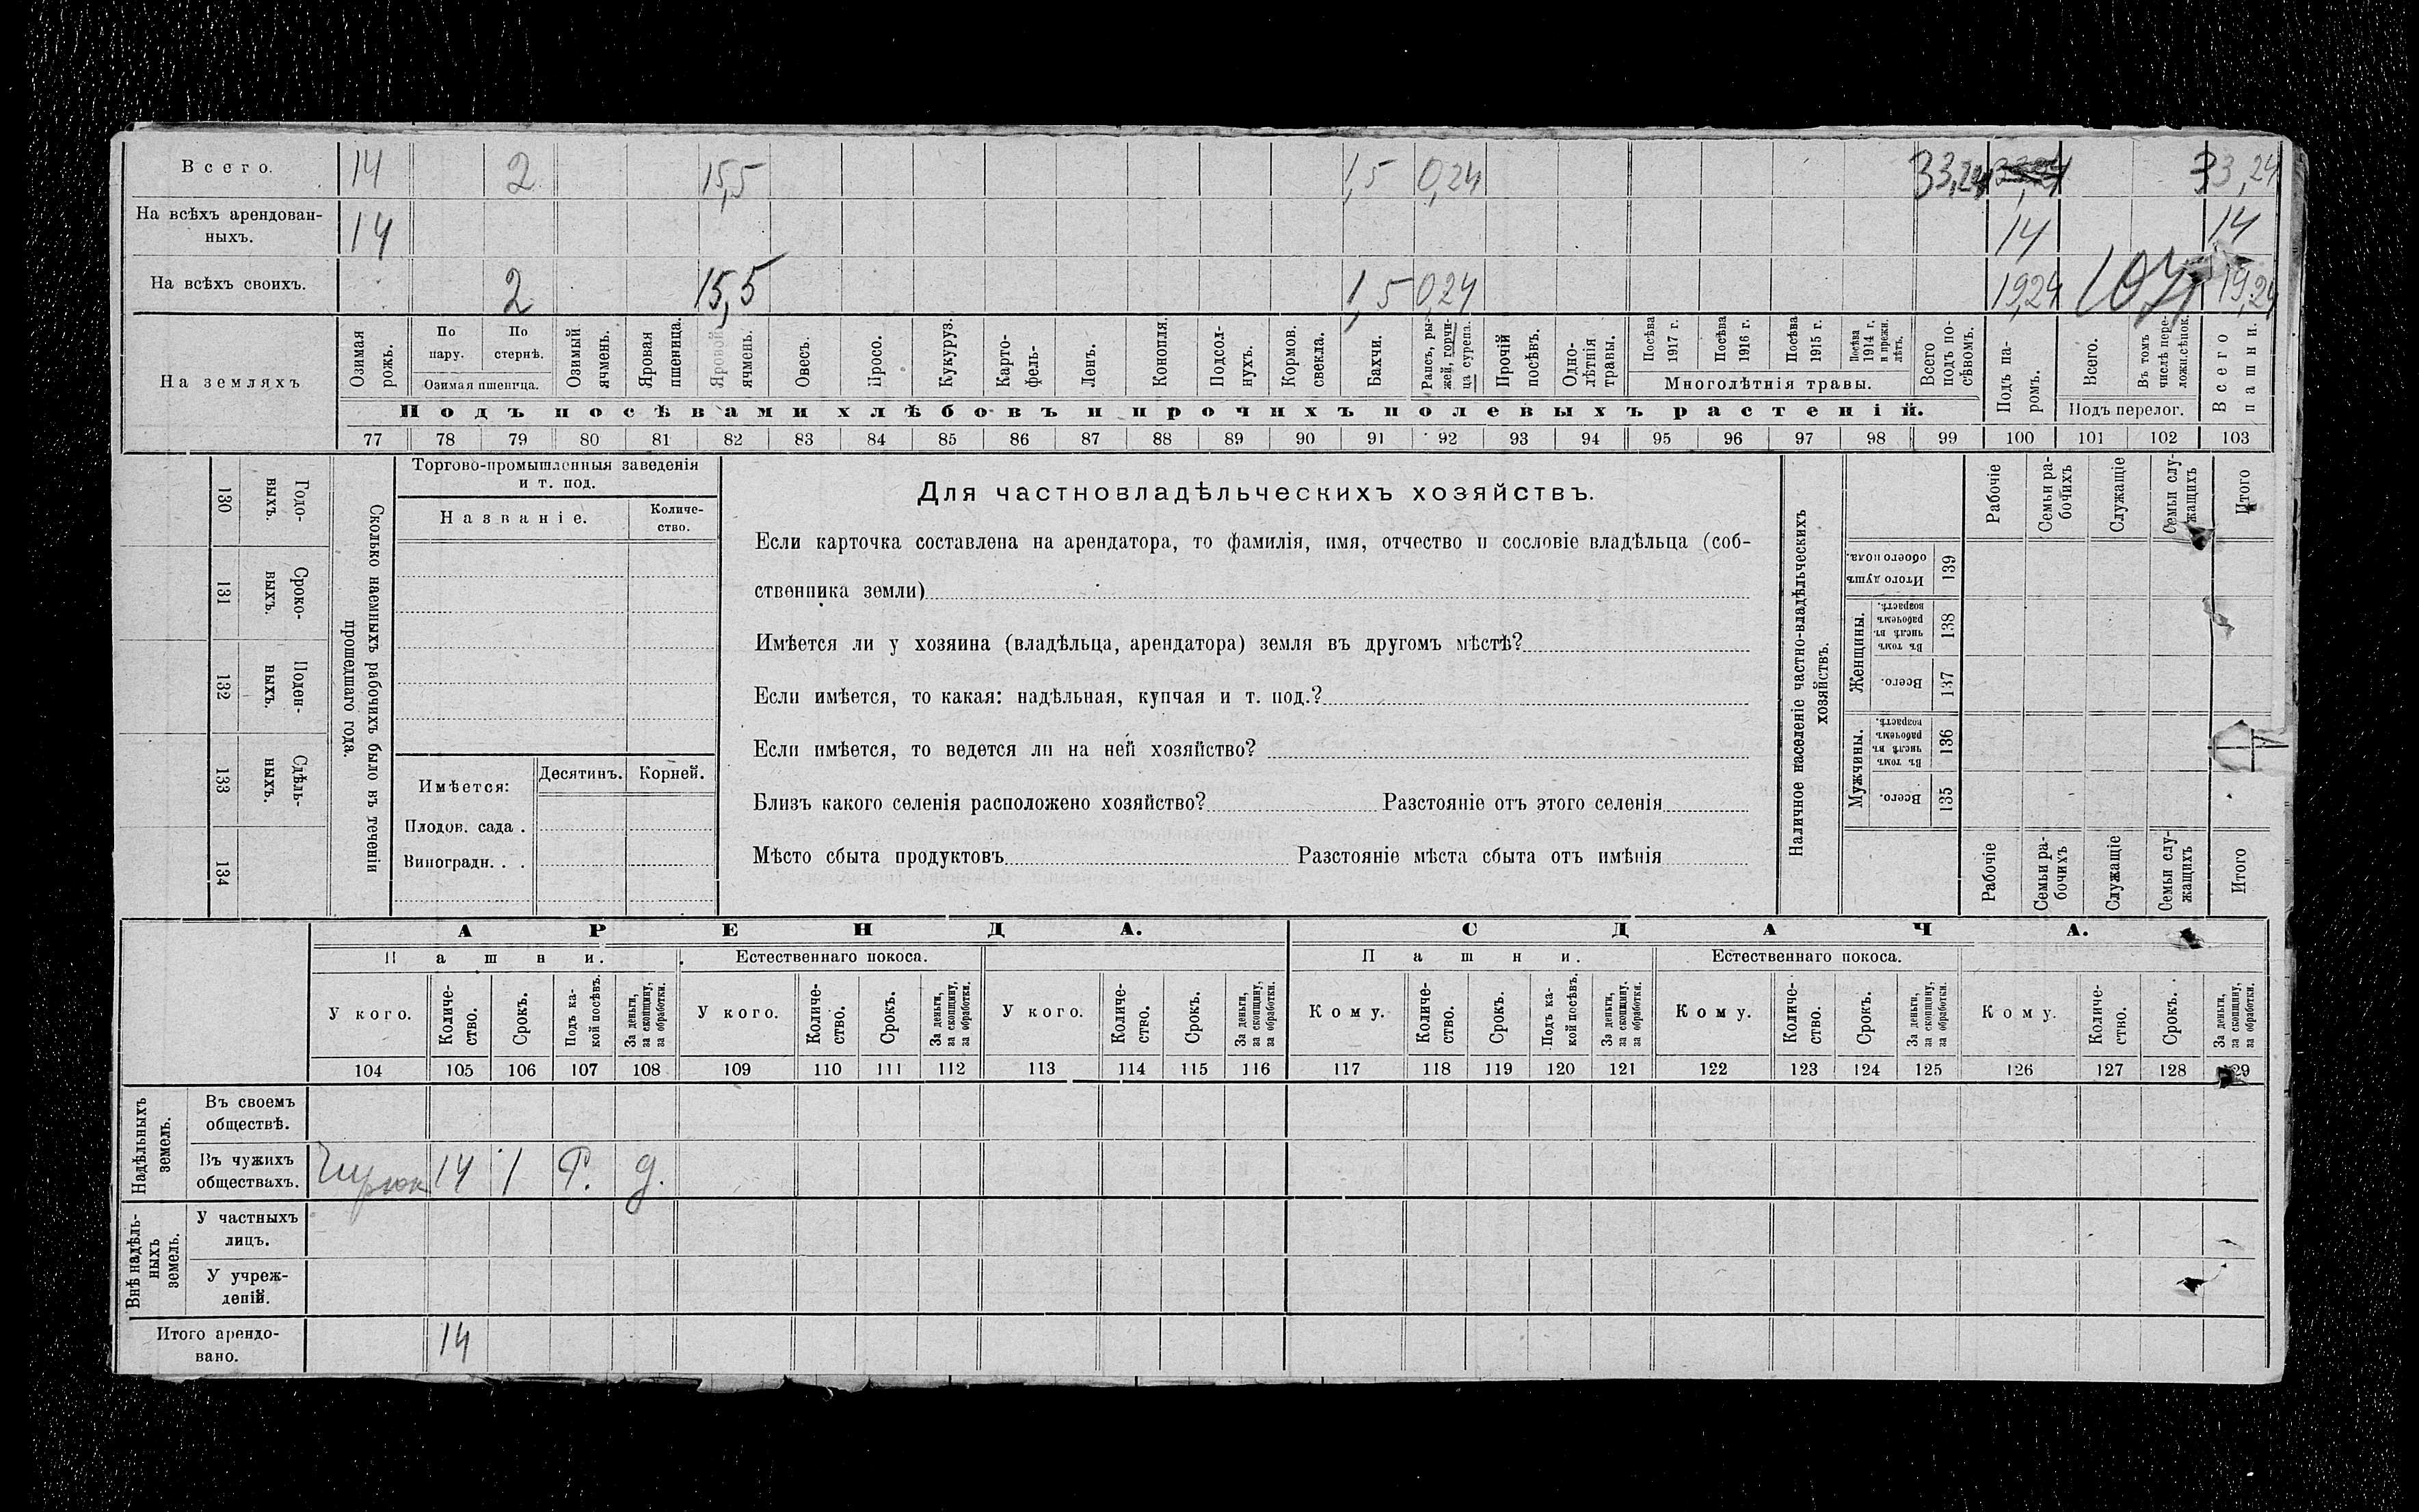 Всего. 14 2 15,5 1,5 0,24 33,24 33,24
На всѣхъ арендован-
ныхъ. 14 14 14
На всѣхъ своихъ. 2 15,5 1,5 0,24 19,24 19,24
На земляхъ
Озимая рожь.
По пару.
По стернѣ.
Озимая пшеница.
Озимый ячмень.
Яровая пшеница.
Яровой ячмень.
Овесъ.
Просо.
Кукуруз.
Карто-
фель.
Ленъ.
Конопля.
Подсол-
нухъ.
Кормов.
свекла.
Бахчи.
Рапсъ, ры-
жей, горчи-
ца сурепа.
Прочій
посѣвъ.
Одно-
лѣтнія
травы.
Посѣва
1917 г.
Посѣва
1916 г.
Посѣва
1915 г.
Посѣва
1914 г.
и прежн.
лѣтъ.
Многолѣтнія травы.
Всего
подъ по-
сѣвомъ.
Подъ па-
ромъ.
Всего.
Въ томъ
числѣ пере-
лож.сѣнок.
Подъ перелог.
Всего
пашни.
Подъ посѣвами хлѣбовъ и прочихъ полевыхъ растеній.
77 78 79 80 81 82 83 84 85 86 87 88 89 90 91 92 93 94 95 96 97 98 99 100 101 102 103
130 Годо-
выхъ.
131 Сроко-
выхъ.
132 Поден-
ныхъ.
133 Сдѣль-
ныхъ.
134
Сколько наемныхъ рабочихъ было въ теченіи
прошедшаго года.
Торгово-промышленныя заведенія
и т. под.
Названіе.
Количе-
ство.
Имѣется:
Десятинъ. Корней.
Плодов. сада .
Виноградн. . .
Для частновладѣльческихъ хозяйствъ.
Если карточка составлена на арендатора, то фамилія, имя, отчество и сословіе владѣльца (соб-
ственника земли)
Имѣется ли у хозяина (владѣльца, арендатора) земля въ другомъ мѣстѣ?
Если имѣется, то какая: надѣльная, купчая и т. под.?
Если имѣется, то ведется ли на ней хозяйство?
Близъ какого селенія расположено хозяйство? Разстояніе отъ этого селенія
Мѣсто сбыта продуктовъ Разстояніе мѣста сбыта отъ имѣнія
Наличное населеніе частно-владѣльческихъ
хозяйствъ.
Рабочіе
Семьи ра-
бочихъ
Служащіе
Семьи слу-
жащихъ
Итого
Итого душъ
обоего пола.
139
Женщины.
Въ томъ
числѣ въ
рабочемъ
возрастѣ.
138
Всего.
137
Мужчины.
Въ томъ
числѣ въ
рабочемъ
возрастѣ.
136
Всего.
135
Рабочіе
Семьи ра-
бочихъ
Служащіе
Семьи слу-
жащихъ
Итого
АРЕНДА. СДАЧА.
Пашни. Естественнаго покоса. Пашни. Естественнаго покоса.
У кого.
Количе-
ство.
Срокъ.
Подъ ка-
кой посѣвъ.
За деньги,
за скопщину,
за обработки.
У кого.
Количе-
ство.
Срокъ.
За деньги,
за скопщину,
за обработки.
У кого.
Количе-
ство.
Срокъ.
За деньги,
за скопщину,
за обработки.
Кому.
Количе-
ство.
Срокъ.
Подъ ка-
кой посѣвъ.
За деньги,
за скопщину,
за обработки.
Кому.
Количе-
ство.
Срокъ.
За деньги,
за скопщину,
за обработки.
Кому.
Количе-
ство.
Срокъ.
За деньги,
за скопщину,
за обработки.
104 105 106 107 108 109 110 111 112 113 114 115 116 117 118 119 120 121 122 123 124 125 126 127 128 129
Надѣльныхъ
земель.
Въ своемъ
обществѣ.
Въ чужихъ
обществахъ. 14 1 Р. д.
Внѣ надѣль-
ныхъ
земель.
У частныхъ
лицъ.
У учреж-
деній.
Итого арендо-
вано. 14